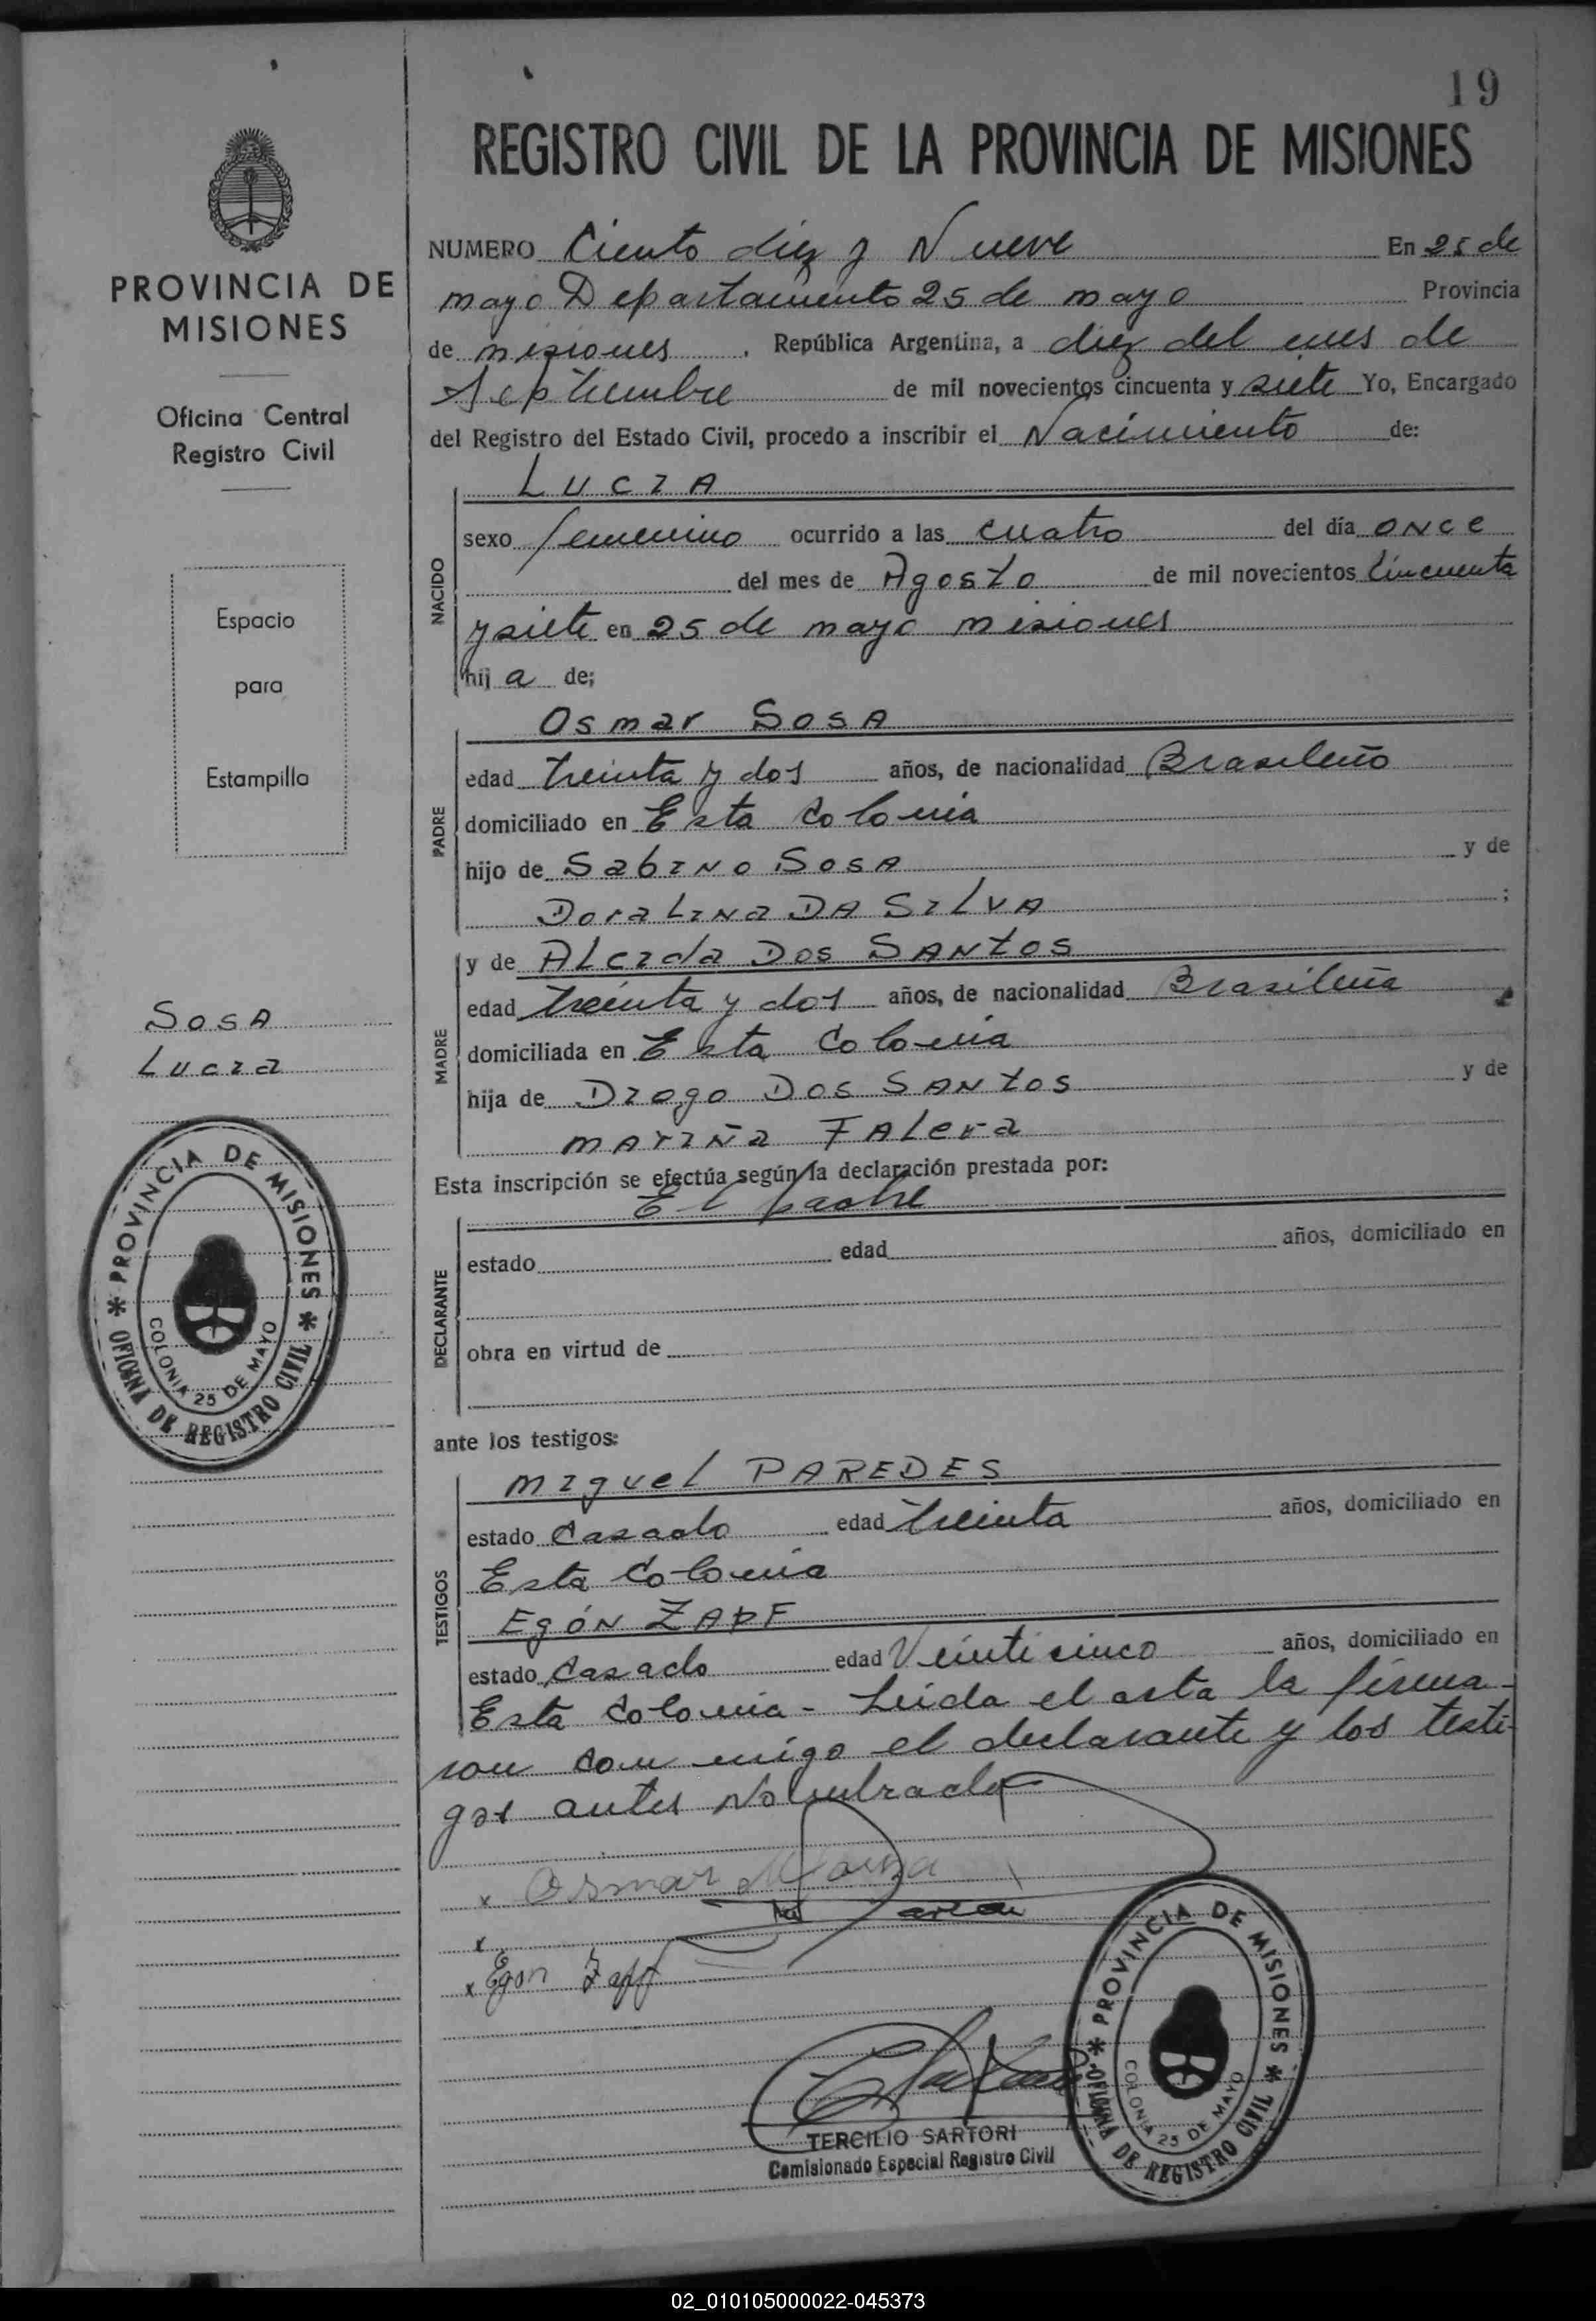 19
REGISTRO CIVIL DE LA PROVINCIA DE MISIONES
PROVINCIA DE
MISIONES
Oficina Central
Registro Civil
Espacio
para
Estampilla
Sosa
Lucia
PROVINCIA DE MISIONES
OFICINA DE REGISTRO CIVIL
COLONIA 25 DE MAYO
NUMERO Ciento diez y Nueve En 25 de
mayo Departamento 25 de mayo Provincia
de misiones, República Argentina, a diez del mes de
Septiembre de mil novecientos cincuenta y siete Yo, Encargado
del Registro del Estado Civil, procedo a inscribir el Nacimiento de:
NACIDO
LUCIA
sexo femenino ocurrido a las cuatro del día once
del mes de Agosto de mil novecientos Cincuenta
y siete en 25 de mayo misiones
hij a de;
PADRE
Osmar Sosa
edad treinta y dos años, de nacionalidad Brasileño
domiciliado en Esta Colonia
hijo de Sabino Sosa y de
Doralina DA SILVA ;
MADRE
y de Alcida Dos SANtos
edad treinta y dos años, de nacionalidad Brasileña
domiciliada en Esta Colonia
hija de Diogo Dos SANtos y de
mariña
Esta inscripción se efectúa según la declaración prestada por:
DECLARANTE
El padre
estado edad años, domiciliado en
obra en virtud de
ante los testigos:
TESTIGOS
miguel PAREDES
estado Casado edad treinta años, domiciliado en
Esta Colonia
Egón ZAPF
estado Casado edad Veinticinco años, domiciliado en
Esta Colonia - Leida el acta la firma-
ron con migo el declarante y los testi-
gos antes Nombrados
x Osmar
x
x Egon Zapf
TERCILIO SARTORI
Comisionado Especial Registro Civil
PROVINCIA DE MISIONES
OFICINA DE REGISTRO CIVIL
COLONIA 25 DE MAYO
02_010105000022-045373